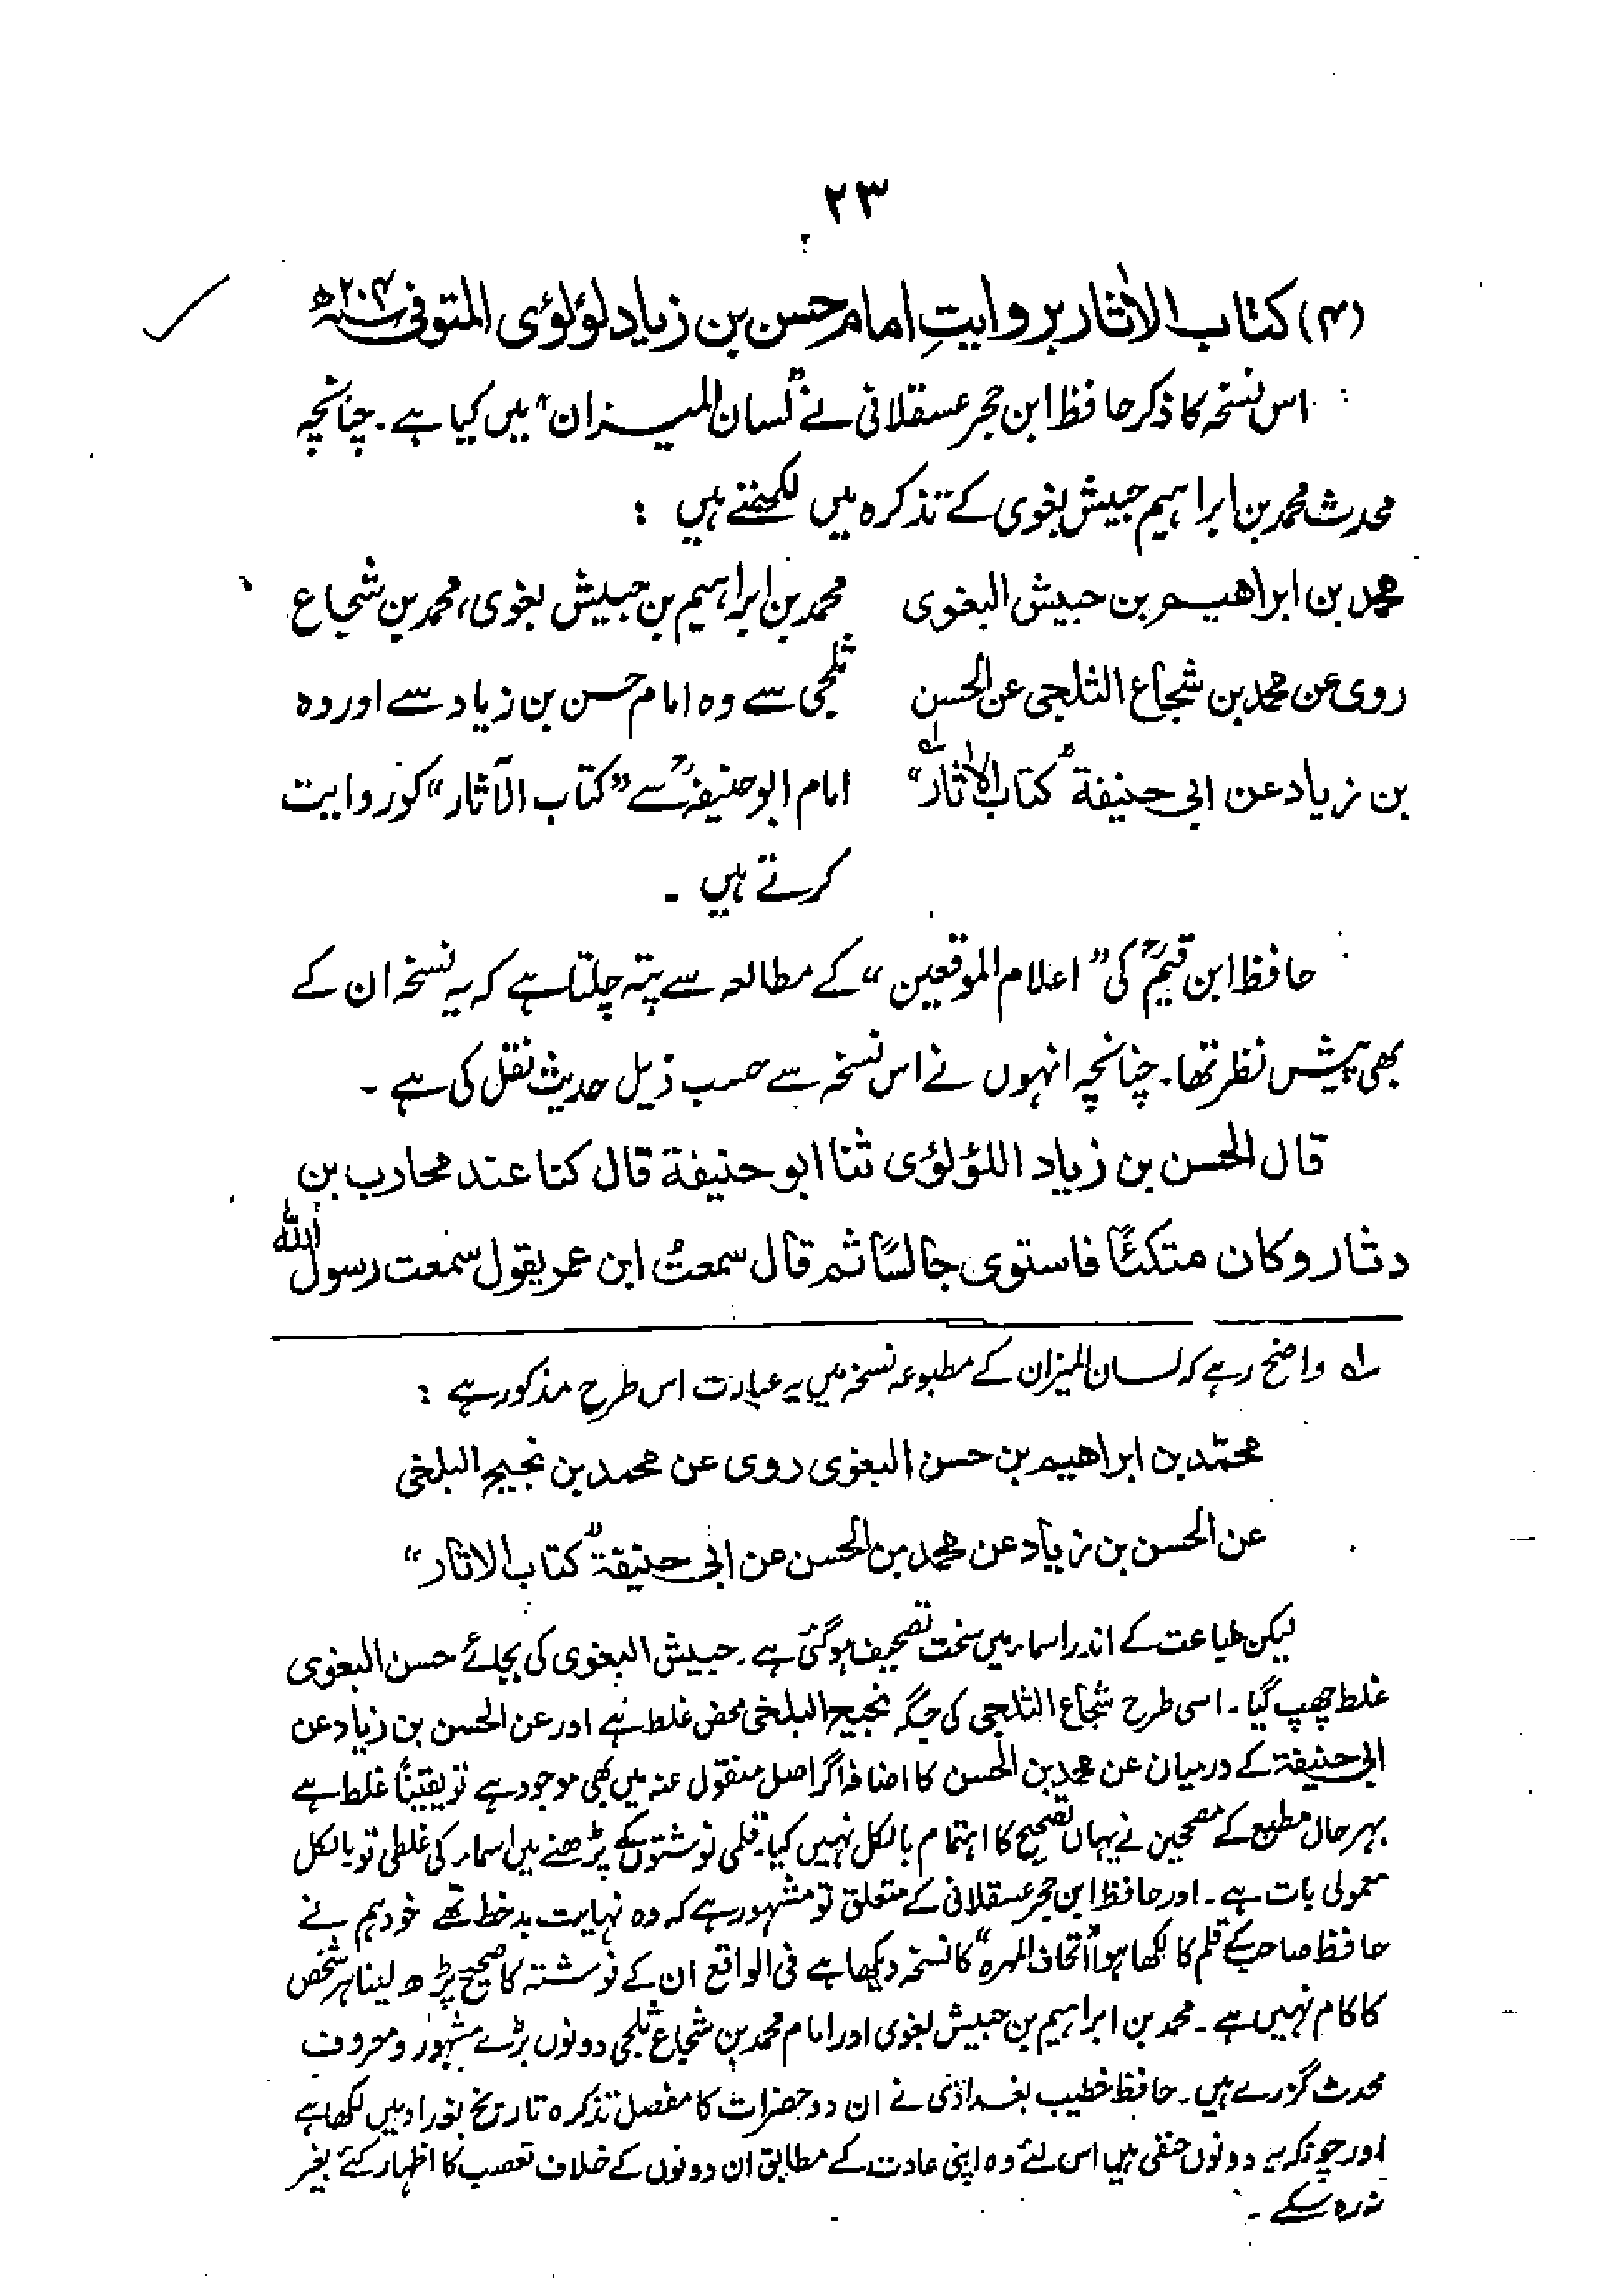 ۲۳
(۴) کتاب الاٰثار بروایتِ امام حسن بن زیاد لؤلؤی المتوفی ۲۰۴ھ
اس نسخہ کا ذکر حافظ ابن حجر عسقلانی نے "لسان المیزان" میں کیا ہے۔ چنانچہ
محدث محمد بن ابراہیم جیش بغوی کے تذکرہ میں لکھتے ہیں :
محمد بن ابراھیم بن حبیش البغوی
روی عن محمد بن شجاع الثلجی عن الحسن
بن زیاد عن ابی حنیفة "کتاب الاٰثار" لہ
محمد بن ابراہیم بن حبیش بغوی، محمد بن شجاع
ثلجی سے وہ امام حسن بن زیاد سے اور وہ
امام ابو حنیفہؒ سے "کتاب الآثار" کو روایت
کرتے ہیں ۔
حافظ ابن قیمؒ کی "اعلام الموقعین" کے مطالعہ سے پتہ چلتا ہے کہ یہ نسخہ ان کے
بھی پیش نظر تھا۔ چنانچہ انہوں نے اس نسخہ سے حسب ذیل حدیث نقل کی ہے ۔
قال الحسن بن زیاد اللؤلؤی ثنا ابو حنیفة قال کنا عند محارب بن
دثار وکان متکئًا فاستوی جالسًا ثم قال سمعتُ ابن عمر یقول سمعت رسول اللہ
لہ واضح رہے کہ لسان المیزان کے مطبوعہ نسخہ میں یہ عبارت اس طرح مذکور ہے :
محمّد بن ابراھیم بن حسن البغوی روی عن محمد بن نجیح البلخی
عن الحسن بن زیاد عن محمد بن الحسن عن ابی حنیفة "کتاب الاثار"
لیکن طباعت کے اندر اسمار میں سخت تصحیف ہو گئی ہے۔ حبیش البغوی کی بجائے حسن البغوی
غلط چھپ گیا۔ اسی طرح شجاع الثلجی کی جگہ نجیح البلخی محض غلط ہے اور عن الحسن بن زیاد عن
ابی حنیفة کے درمیان عن محمد بن الحسن کا اضافہ اگر اصل منقول عنہ میں بھی موجود ہے تو یقینًا غلط ہے
بہر حال مطبع کے مصححین نے یہاں تصحیح کا اہتمام بالکل نہیں کیا۔ قلمی نوشتوں کے پڑھنے میں اسمار کی غلطی تو بالکل
معمولی بات ہے۔ اور حافظ ابن حجر عسقلانی کے متعلق تو مشہور ہے کہ وہ نہایت بد خط تھے خود ہم نے
حافظ صاحب کے قلم کا لکھا ہوا "اتحاف المہرہ" کا نسخہ دیکھا ہے فی الواقع ان کے نوشتہ کا صحیح پڑھ لینا ہر شخص
کا کام نہیں ہے۔ محمد بن ابراہیم بن حبیش بغوی اور امام محمد بن شجاع ثلجی دونوں بڑے مشہور و معروف
محدث گزرے ہیں۔ حافظ خطیب بغدادی نے ان دو حضرات کا مفصل تذکرہ تاریخ بغداد میں لکھا ہے
اور چونکہ یہ دونوں حنفی ہیں اس لئے وہ اپنی عادت کے مطابق ان دونوں کے خلاف تعصب کا اظہار کئے بغیر
نہ رہ سکے ۔